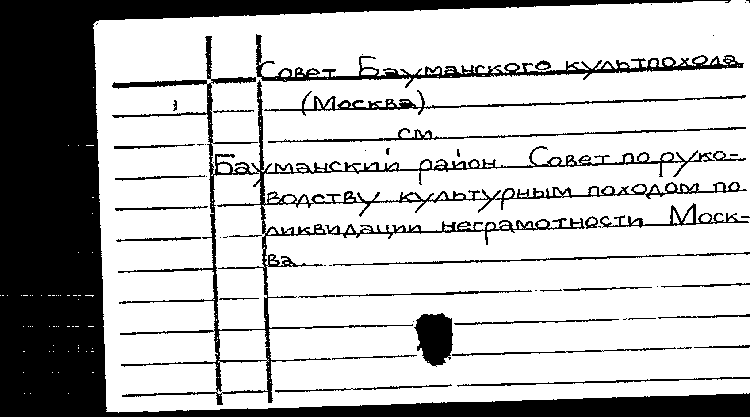 Совет Бауманского культпохода
(Москва)
см.
Бауманский район. Совет по руко-
водству культурным походом по
ликвидации неграмотности. Моск-
ва.